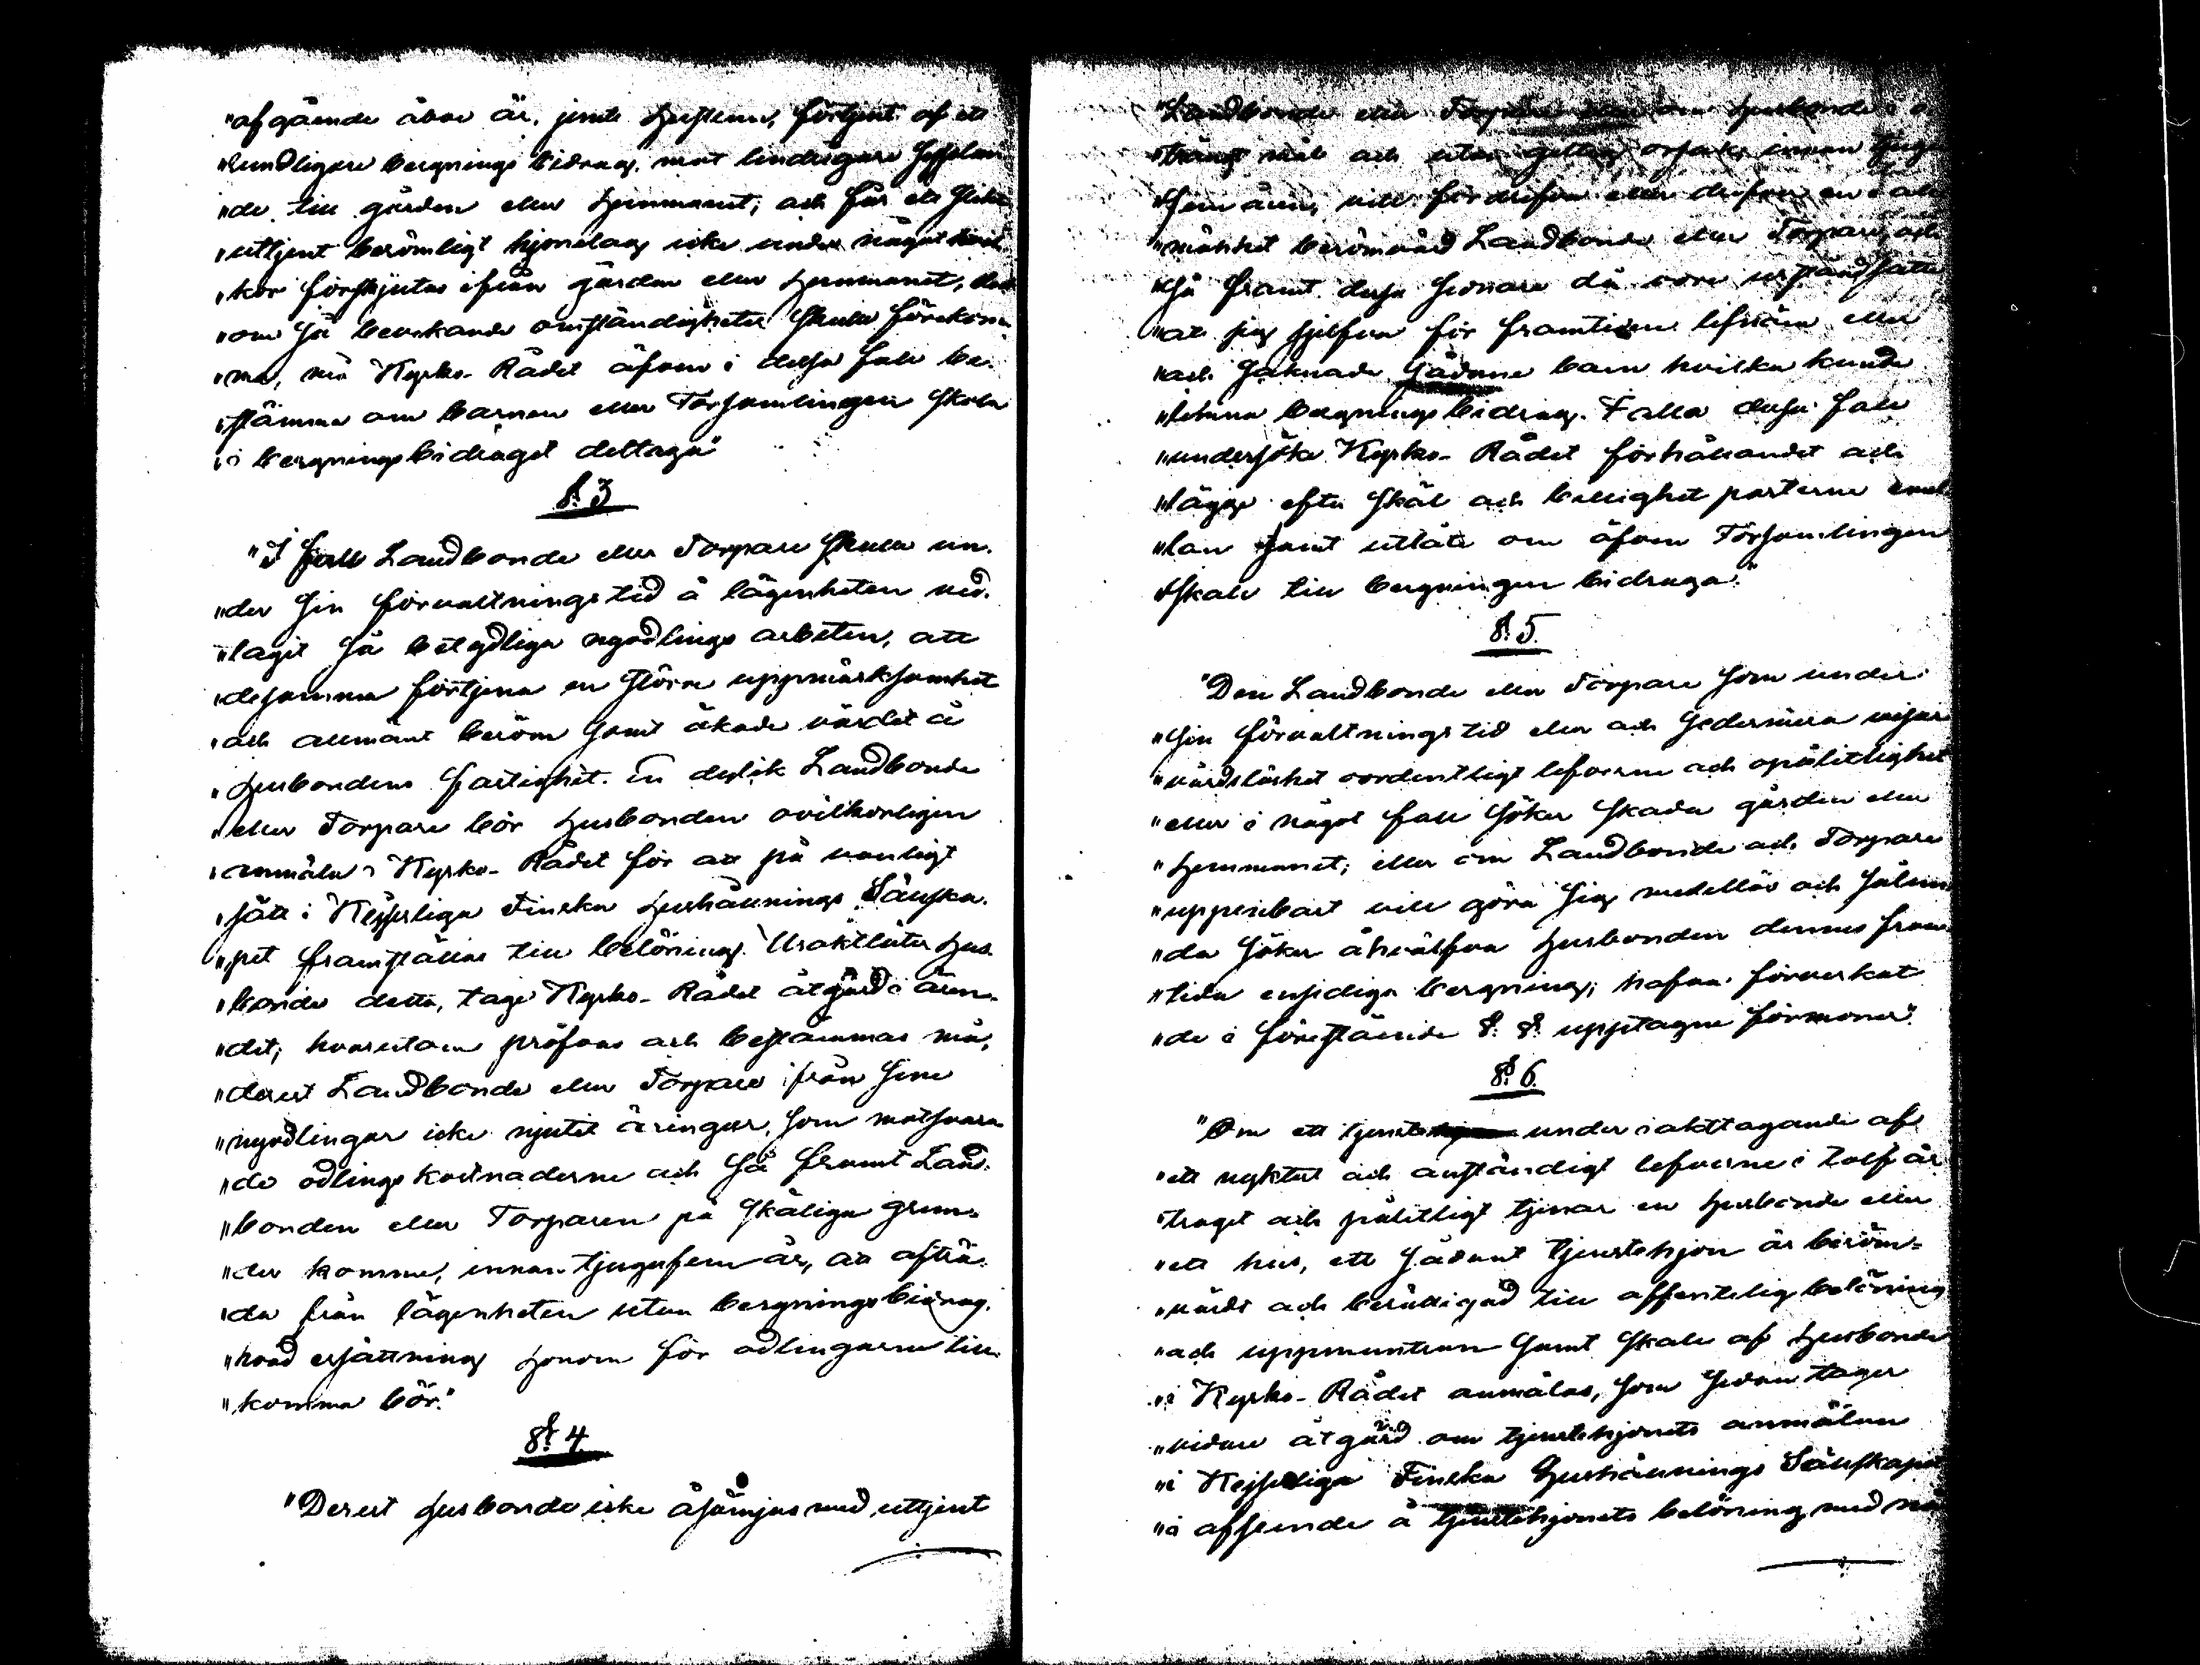 "afgående åboe är, jemte hustrun, förtjent af ett
"lindrigare bergnings bidrag, mot lindrigare sysslan-
"de till gården eller hemmanet; och får ett slikt
"uttjent berömligt hjonelag icke under något vil-
"kor förskjutas ifrån gården eller hemmanet,
"om så beveekande omständigheter skulle förekom-
"ma, må Kyrko-Rådet äfven i dessa fall be-
"stämma om barnen eller Församlingen skola
"i bergningsbidraget deltaga"
§. 3
"I fall Landbonde eller Torpare skulle un-
"der sin förvaltningstid å lägenheten ned-
"lagit så betydliga nyodlings arbeten, att
"desamma förtjena en större uppmärksamhet
"och allmänt beröm samt ökade värdet å
"husbondens fastighet. En dyslik Landbonde
"eller Torpare bör husbonden ovilkorligen
"anmäla i Kyrko-Rådet för att på vanligt
"sätt i Kejserliga Finska Hushållnings Sällska-
"pet framställas till belöning. Uraktlåter hus-
"bonde detta, tage Kyrko-Rådet åtgärd i ären-
"det; hvarutom pröfvas och bestämmas må,
"derest Landbonde eller Torpare ifrån sine
"nyodlingar icke njutit äringar, som motsvara-
"de odlings kostnaderne och så framt Land-
"bonden eller Torparen på skäliga grun-
"der komme, innan tjugufem år, att afträ-
"da från lägenheten utan bergningsbidrag,
"hvad ersättning honom för odlingarne till-
"komma bör."
§. 4
"Derest husbonde icke åsämjas med uttjent
"Landbonde eller Torpare eller om husbonde i
"trängt mål och utan giltig orsak, innan tjugu
"fem åren, vill fördrifva eller drifver en i all-
"mänhet berömvärd Landbonde eller Torpare, och
"så framt desse senare då vore urståndsatte
"att sig sjelfva för framtiden lifnära eller
"och saknade sådane barn hvilka kunde
"lemna bergningsbidrag. I alla dessa fall
"undersöke Kyrko-Rådet förhållandet och
"lägge efter skäl och billighet parterne emel-
"lan samt utlåte om äfven Församlingen
"skall till bergningen bidraga."
§. 5.
"Den Landbonde eller Torpare som under
"sin förvaltningstid eller och sedermera visar
"vårdslöshet oordentligt lefverne och opålitlighet
"eller i något fall söker skada gården eller
"hemmanet; eller om Landbonde och Torpare
"uppenbart vill göra sig medellös och sålun-
"da söker åhvälfva husbonden dennes fram-
"tida ensidiga bergning; hafva förverkat
"de i föreståénde §. §. upptagne förmoner".
§. 6.
"Om ett tjenste under iakttagande af
"ett nyktert och anständigt lefverne i tolf år
"troget och pålitligt tjenar en husbonde eller
"ett hus, ett sådant tjenstehjon är beröm-
"värdt och berättigad till offentelig belöning
"och uppmuntran samt skall af husbonde
"i Kyrko-Rådet anmälas, som sedan tager
"vidare åtgärd om tjenstehjonets anmälan
"i Kejserliga Finska Hushållnings Sällskapet
"i afseende å tjenstehjonets belöning med nå